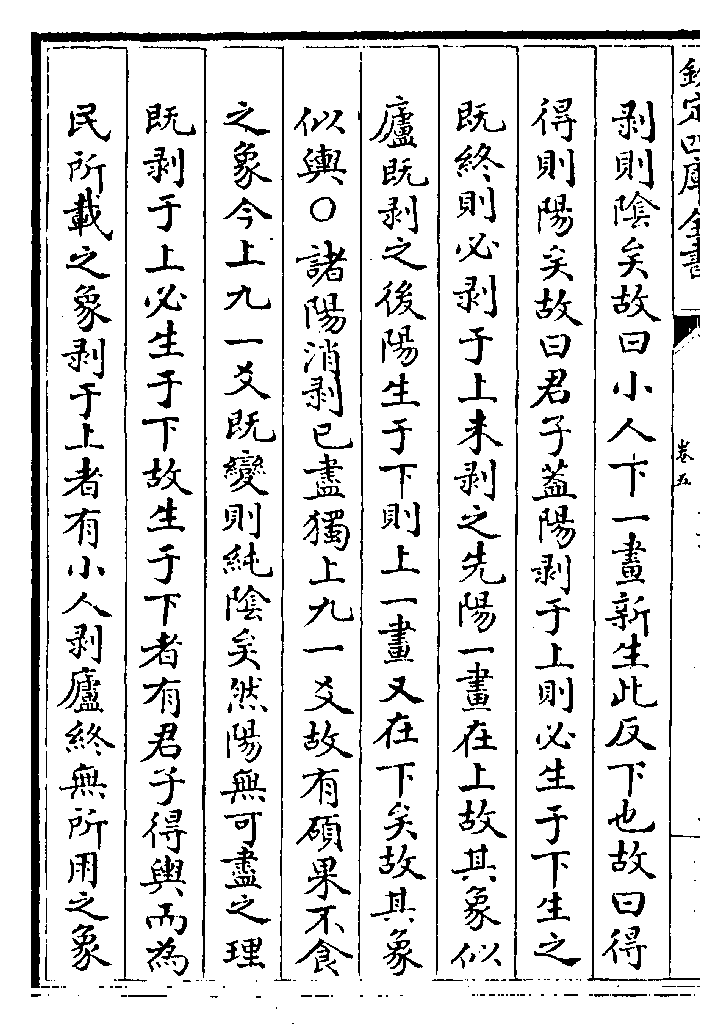 欽定四庫全書
卷五
剥則陰矣故曰小人下一畫新生此反下也故曰得
得則陽矣故曰君子葢陽剥于上則必生于下生之
既終則必剥于上未剥之先陽一畫在上故其象似
廬既剥之後陽生于下則上一畫又在下矣故其象
似輿○諸陽消剥已盡獨上九一爻故有碩果不食
之象今上九一爻既變則純陰矣然陽無可盡之理
既剥于上必生于下故生于下者有君子得輿而為
民所載之象剥于上者有小人剥廬終無所用之象